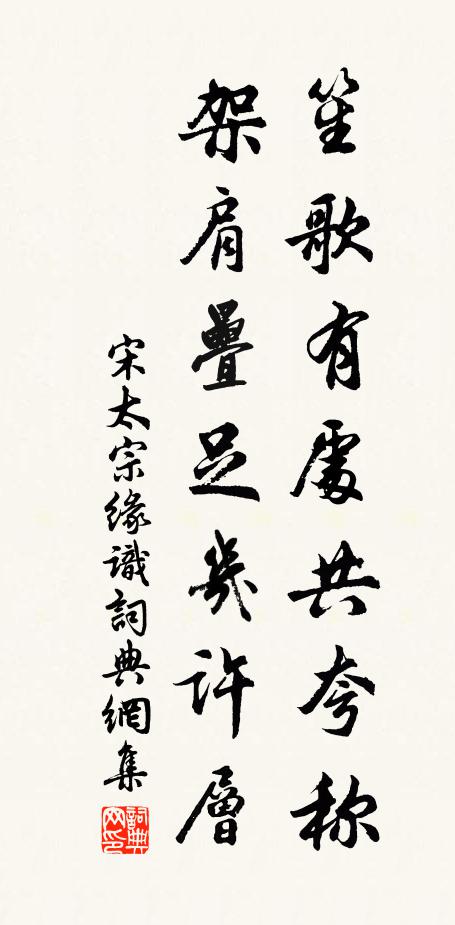 笙歌有處共夸称
架肩疊足幾許層
宋太宗緣識詞典網集
詞典网印